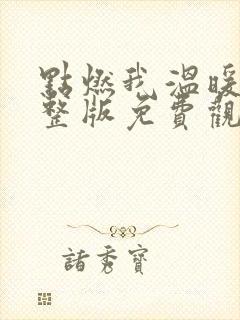 點燃我溫暖
整版免費觀
諸秀寶